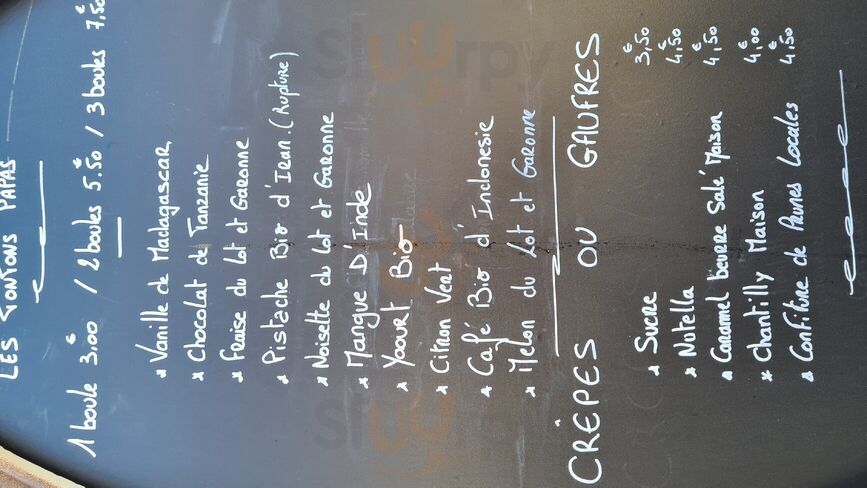 LES TONTONS PAPAS
1 boule 3.00€ / 2 boules 5.50€ / 3 boules 7,50€
* Vanille de Madagascar
* Chocolat de Tanzanie
* Fraise du Lot et Garonne
* Pistache Bio d'Iran. (Rupture)
* Noisette du Lot et Garonne
* Mangue D'Inde
* Yaourt Bio
* Citron Vert
* Café Bio d'Indonesie
* Melon du Lot et Garonne
CRÊPES OU GAUFRES
* Sucre 3,50€
* Nutella 4,50€
* Caramel beurre Salé Maison 4,50€
* Chantilly Maison 4,00€
* Confiture de Prunes Locales 4,50€
Sluurpy
Sluurpy